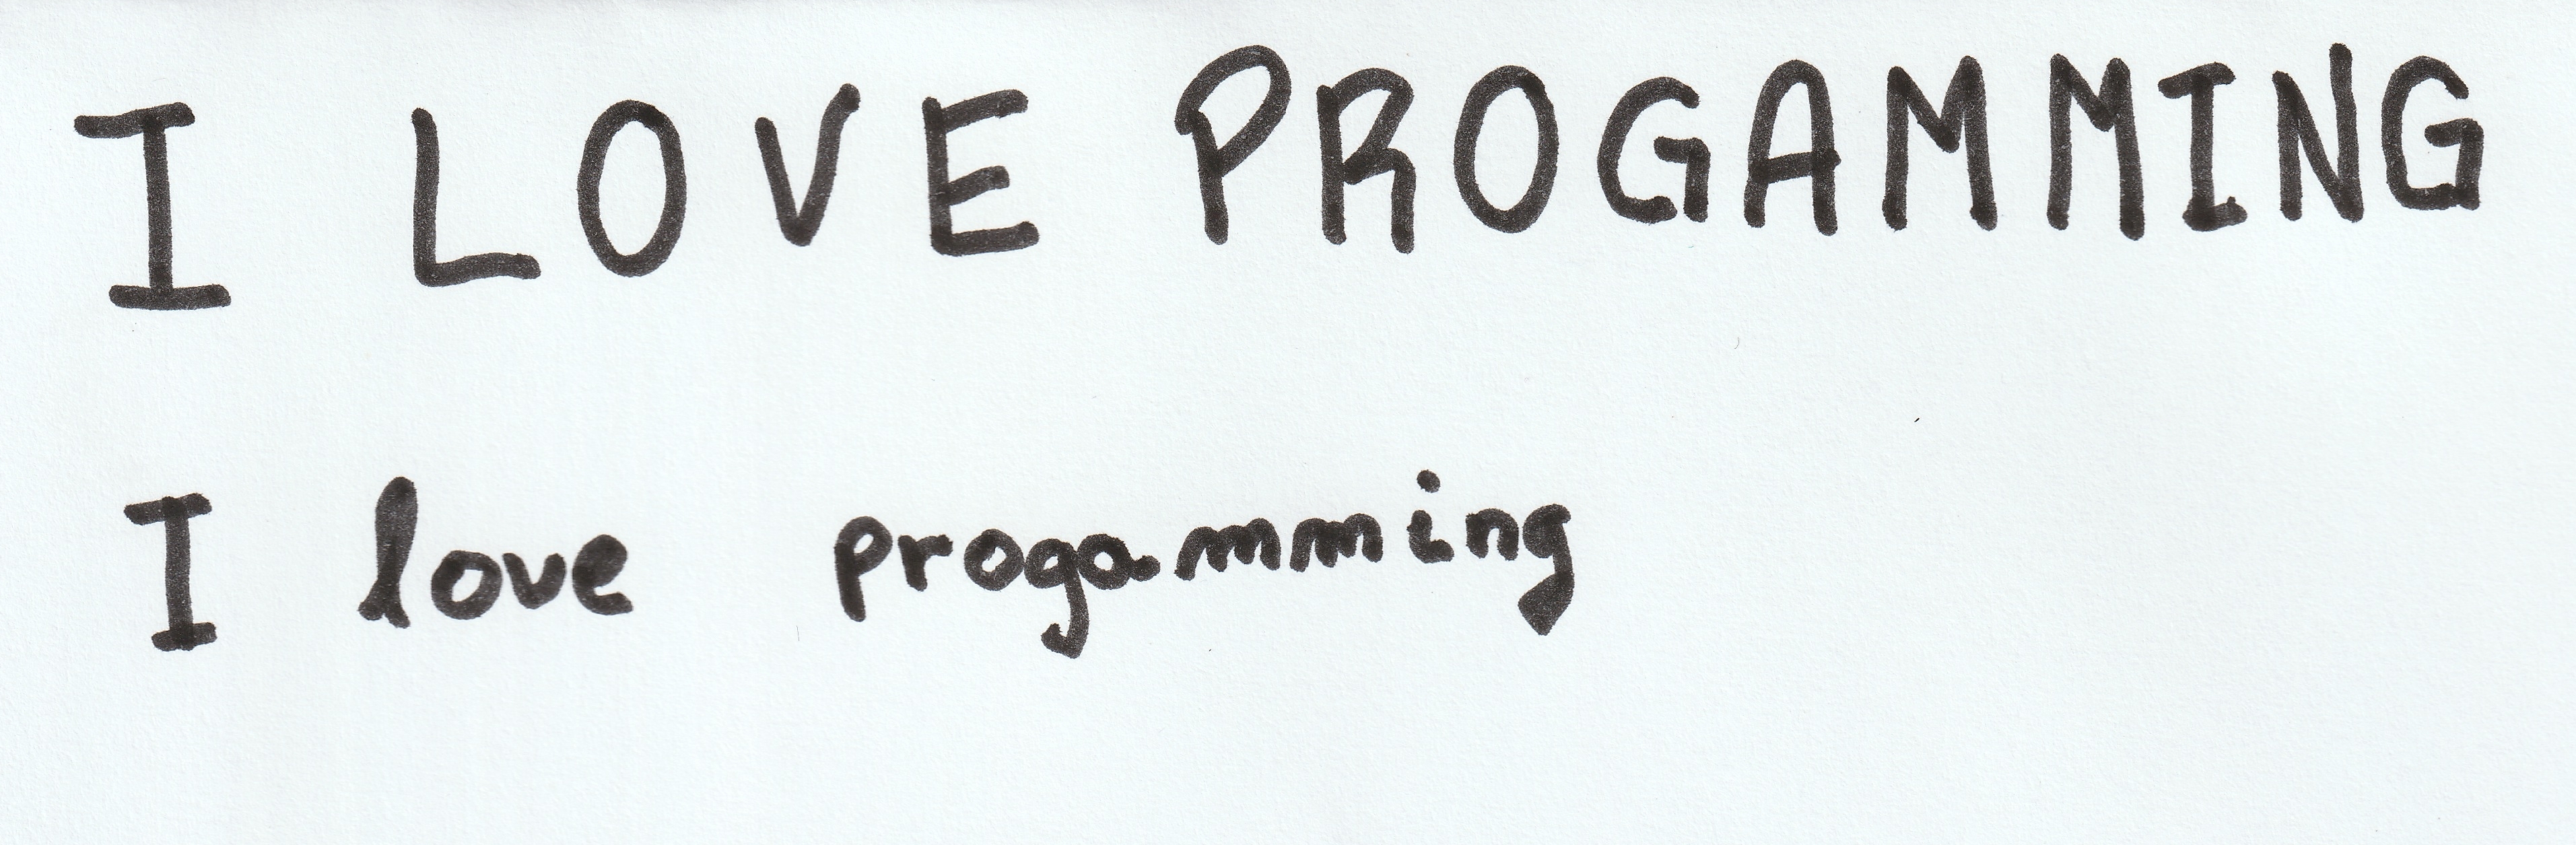 I LOVE PROGAMMING
I love progamming